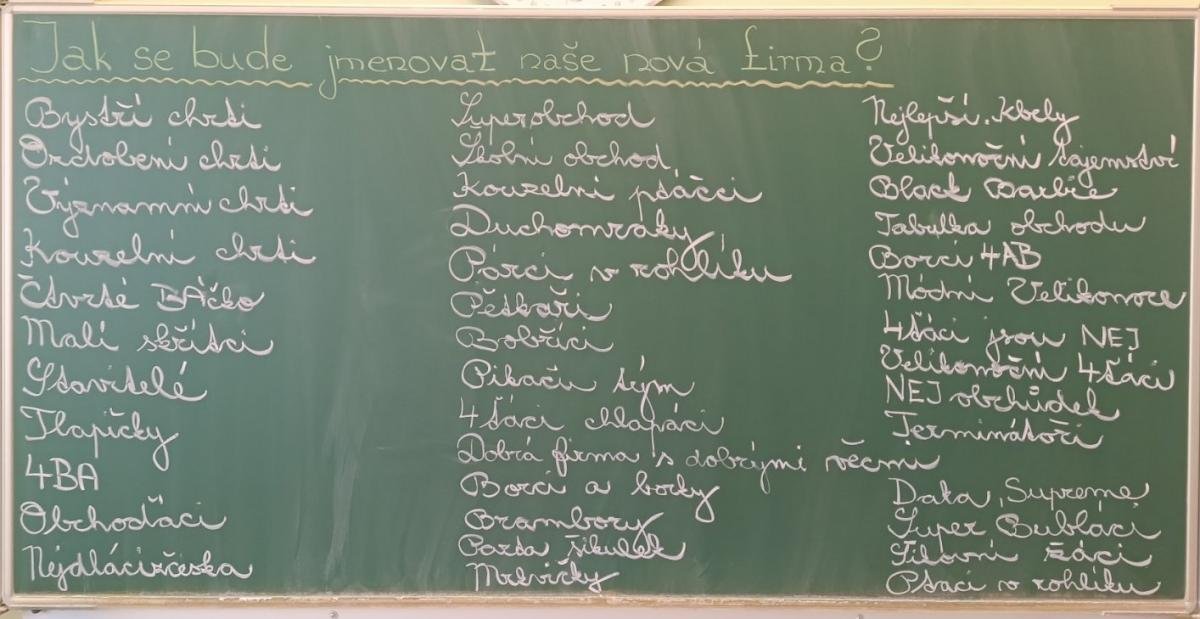 Jak se bude jmenovat naše nová firma?
Bystří chrti
Ozdobení chrti
Významní chrti
Kouzelní chrti
Čtvrté BÁčko
Malí skřítci
Stavitelé
Tlapičky
4BA
Obchoďáci
Superobchod
Školní obchod
Kouzelní ptáčci
Duchomraky
Párci v rohlíku
Pěškaři
Bobříci
Pikaču tým
4 ťáci chlapáci
Dobrá firma s dobrými věcmi
Borci a borky
Brambory
Parta šikulek
Mrkvičky
Nejlepší Kbely
Velikonoční tajemství
Black Barbie
Tabulka obchodu
Borci 4AB
Módní Velikonoce
4ťáci jsou NEJ
Velikonoční 4ťáci
NEJ obchůdek
Terminátoři
Daka, Supreme
Super Bubláci
Filovní žáci
Ptáci v rohlíku